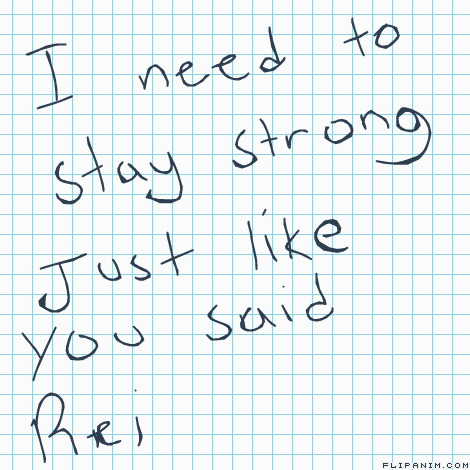 I need to
stay strong
Just like
you said
Rei
FLIPANIM.COM